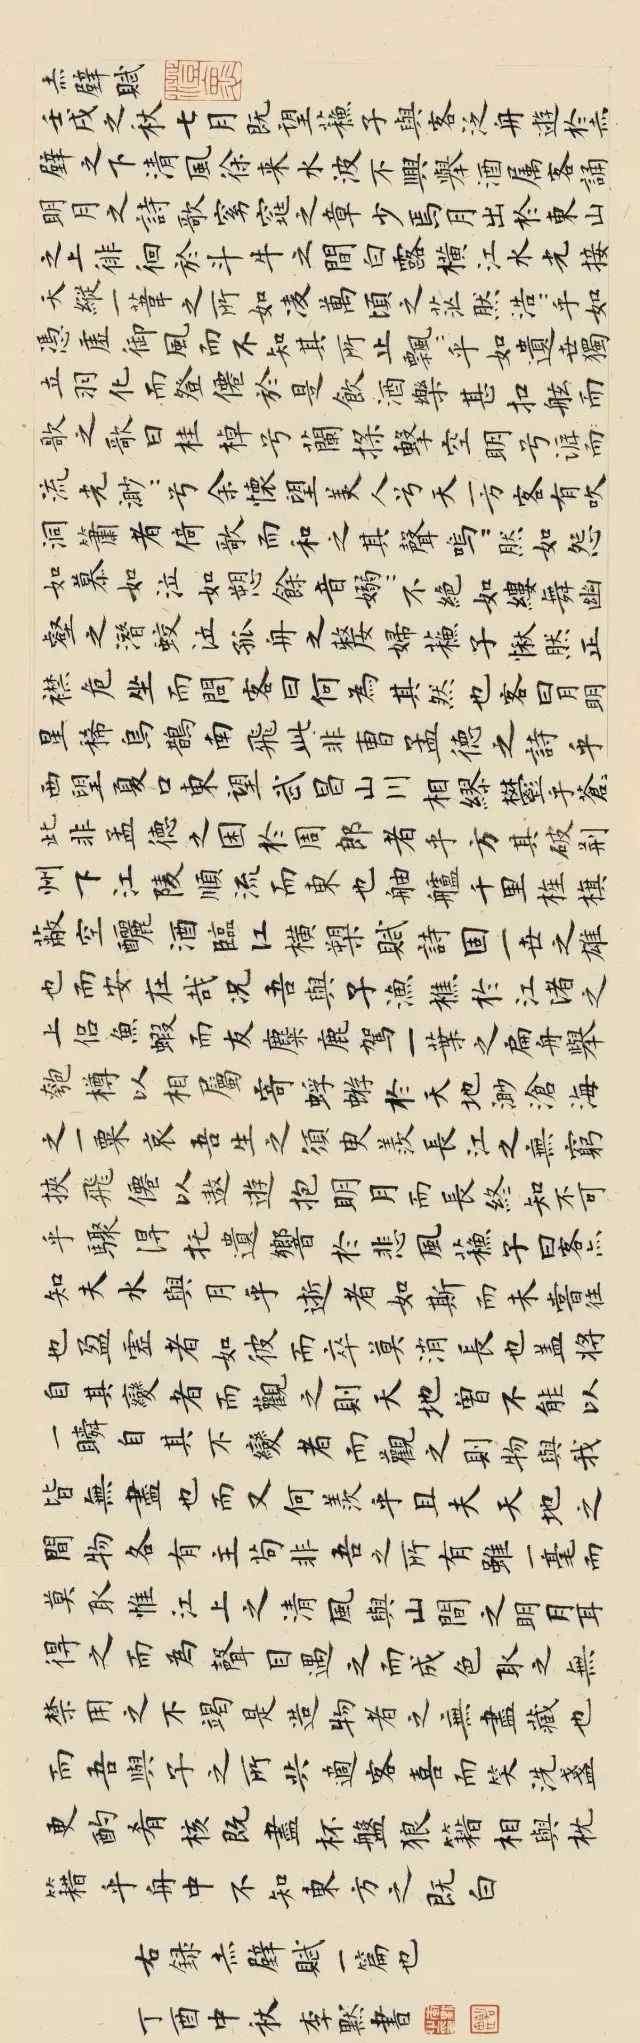 赤壁賦
壬戌之秋七月既望蘇子與客泛舟遊於赤
壁之下清風徐来水波不興舉酒属客誦
明月之詩歌窈窕之章少焉月出於東山
之上徘徊於斗牛之間白露橫江水光接
天縱一葦之所如凌萬頃之茫然浩〻乎如
憑虛御風而不知其所止飄〻乎如遺世獨
立羽化而登僊於是飲酒樂甚扣舷而
歌之歌曰桂棹兮蘭槳擊空明兮泝而
流光渺〻兮余懷望美人兮天一方客有吹
洞簫者倚歌而和之其聲嗚〻然如怨
如慕如泣如愬餘音嫋〻不絕如縷舞幽
壑之潛蛟泣孤舟之嫠婦蘇子愀然正
襟危坐而問客曰何為其然也客曰月明
星稀烏鵲南飛此非曹孟德之詩乎
西望夏口東望武昌山川相繆鬱乎蒼〻
此非孟德之困於周郎者乎方其破荊
州下江陵順流而東也舳艫千里旌旗
蔽空釃酒臨江橫槊賦詩固一世之雄
也而安在哉况吾與子漁樵於江渚之
上侶魚蝦而友麋鹿駕一葉之扁舟舉
匏樽以相屬寄蜉蝣於天地渺滄海
之一粟哀吾生之須臾羨長江之無窮
挾飛僊以遨遊抱明月而長終知不可
乎驟得托遺響於悲風蘇子曰客亦
知夫水與月乎逝者如斯而未嘗往
也盈虛者如彼而卒莫消長也盖將
自其變者而觀之則天地曾不能以
一瞬自其不變者而觀之則物與我
皆無盡也而又何羨乎且夫天地之
間物各有主苟非吾之所有雖一毫而
莫取惟江上之清風與山間之明月耳
得之而為聲目遇之而成色取之無
禁用之不竭是造物者之無盡藏也
而吾與子之所共適客喜而笑洗盞
更酌肴核既盡杯盤狼籍相與枕
籍乎舟中不知東方之既白
右録赤壁賦一篇也
丁酉中秋李默書